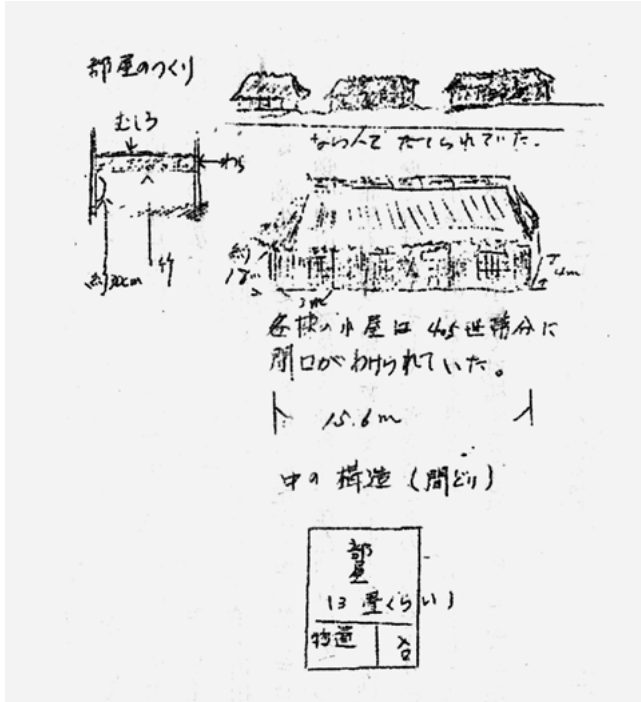 部屋のつくり
むしろ
わら
約30cm
竹
ならんで たてられていた.
約
3m
4m
各棟の小屋は 4,5世帯分に
間口がわけられていた。
15.6m
中の構造(間どり)
部屋
(3畳くらい)
物置
入口